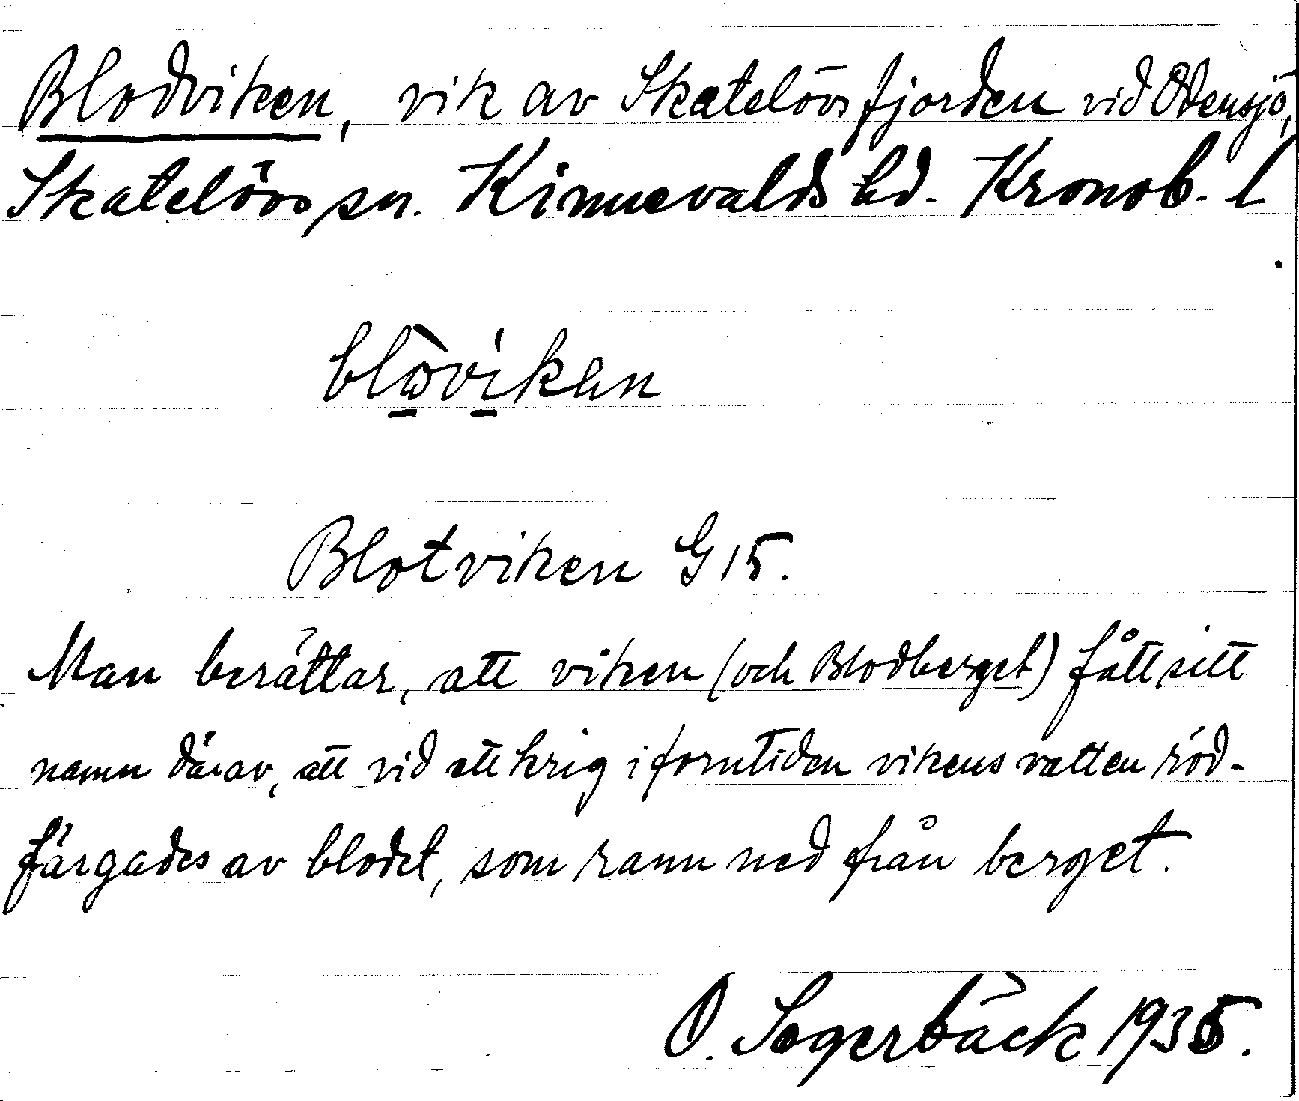 Blodviken, vik av Skatelövsfjorden vid Odensjö,
Skatelövs sn. Kinnevalds hd. Kronob. l
blὼvíkən
Blotviken G 15.
Man berättar, att viken (och Blodberget) fått sitt
namn därav, att vid ett krig i forntiden vikens vatten röd-
färgades av blodet, som rann ned från berget.
O. Sogerbäck 1935.